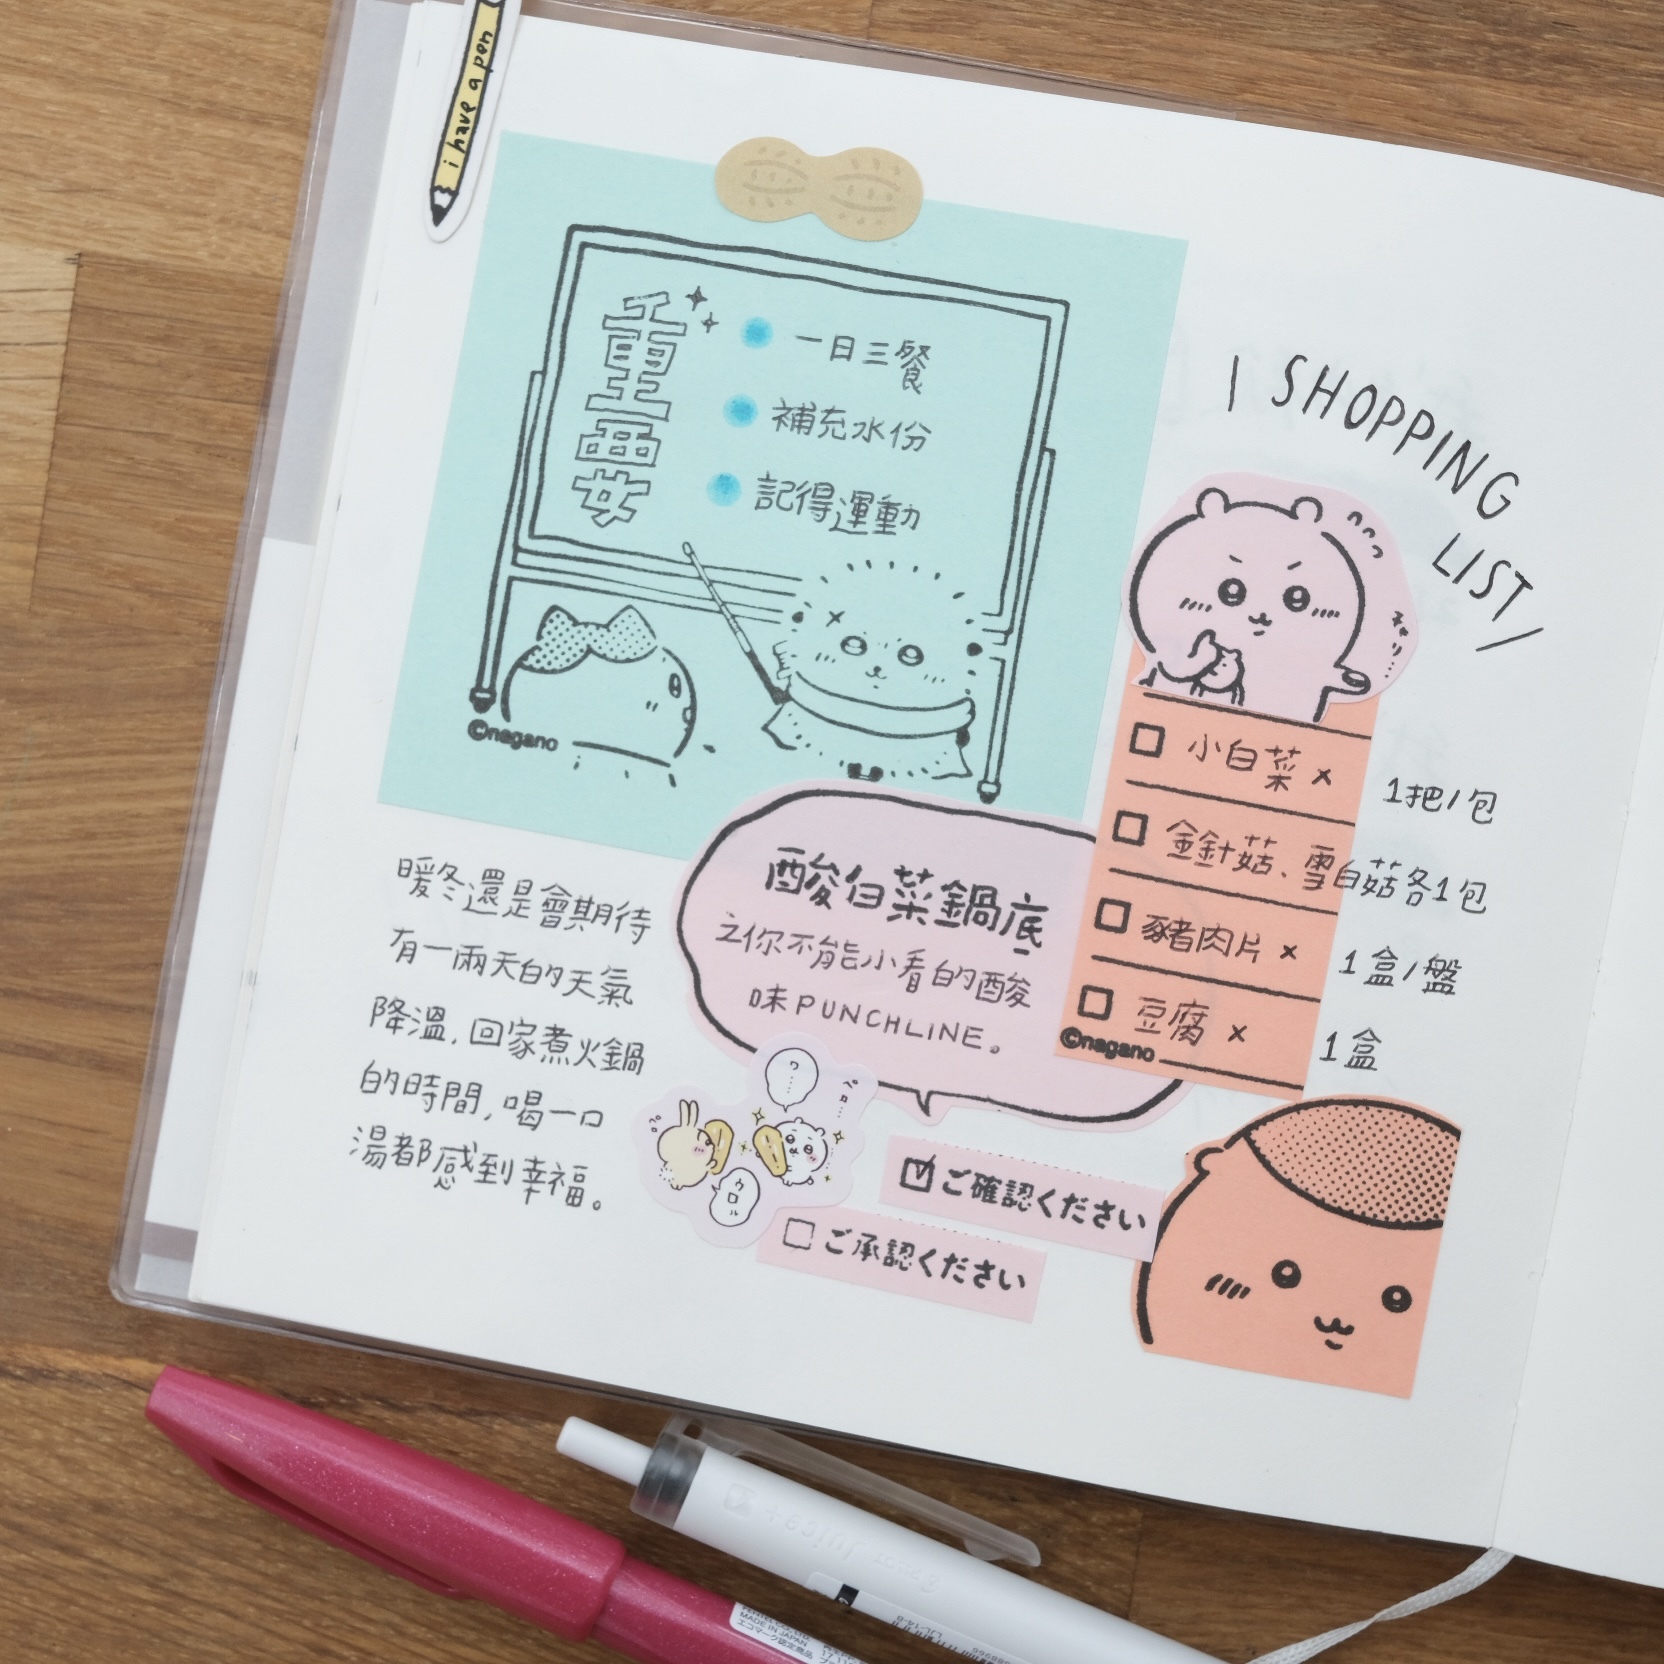 i have a pen
重要
一日三餐
補充水份
記得運動
©nagano
\ SHOPPING
LIST /
小白菜 × 1把/包
金針菇、雪白菇各1包
豬肉片 × 1盒/盤
豆腐 × 1盒
©nagano
酸白菜鍋底
之你不能小看的酸
味PUNCHLINE。
暖冬還是會期待
有一兩天的天氣
降溫,回家煮火鍋
的時間,喝一口
湯都感到幸福。
ワ……
ペロ…
ウロル
ご確認ください
ご承認ください
MADE IN JAPAN
エコマーク認定商品
Juice+